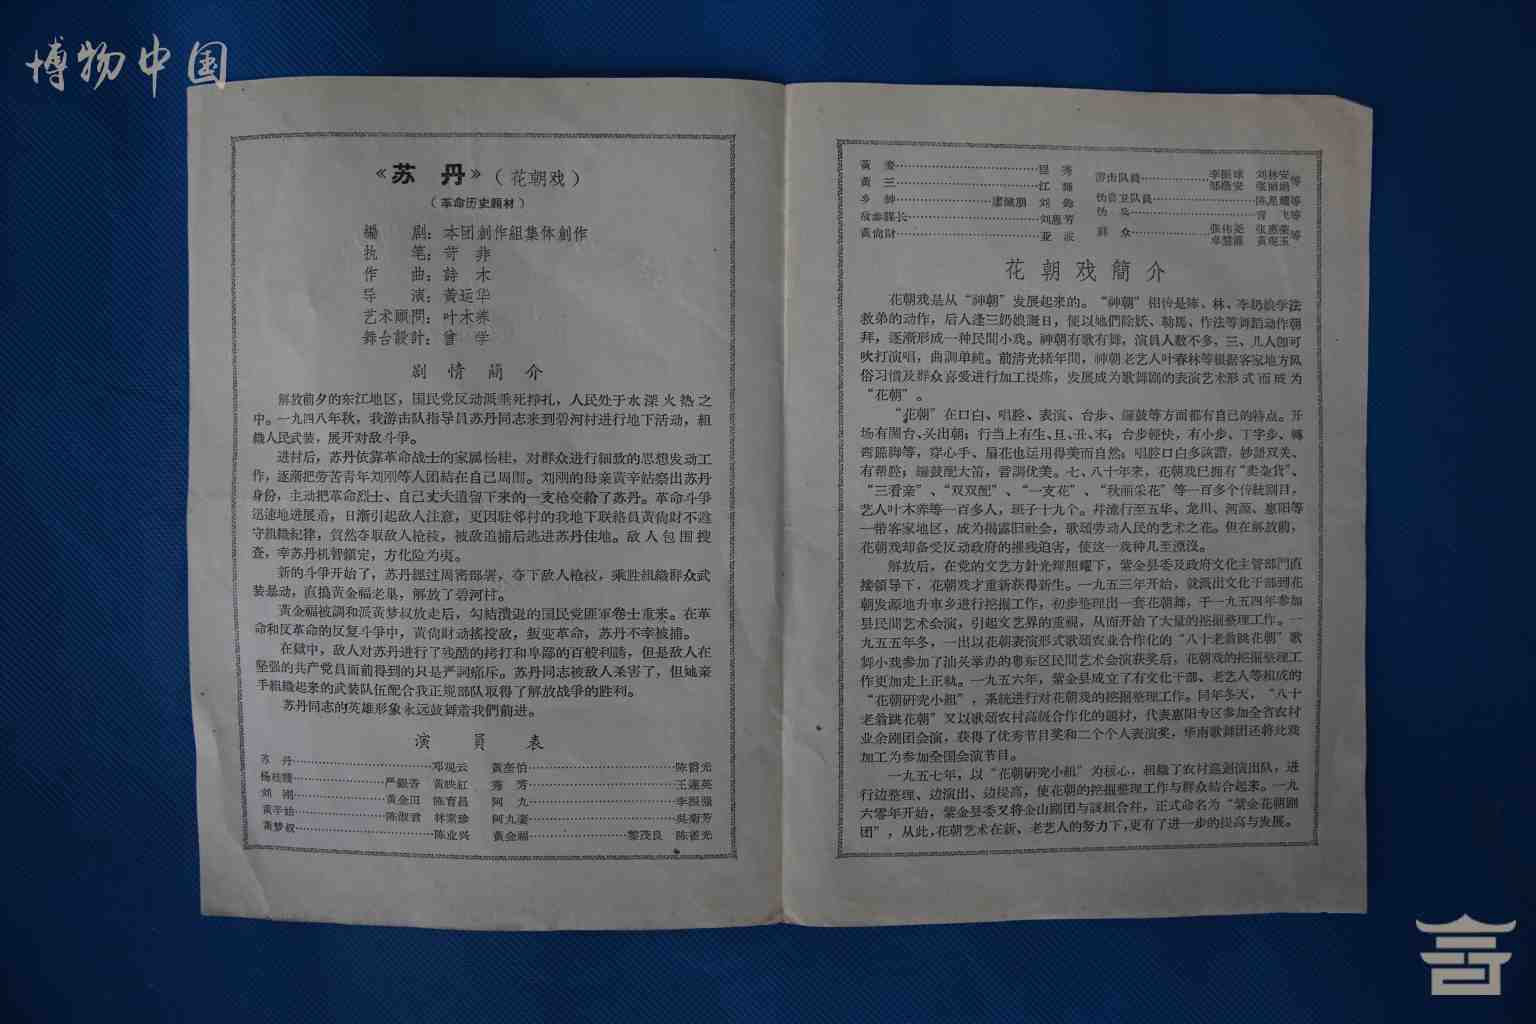 博物中国
《苏 丹》（花朝戏）
（革命历史题材）
編 剧：本团創作組集体創作
执 笔：苛 非
作 曲：詩 木
导 演：黄运华
艺术顾問：叶木养
舞台設計：曾 学
剧 情 簡 介
解放前夕的东江地区，国民党反动派垂死掙扎，人民处于水深火热之
中。一九四八年秋，我游击队指导員苏丹同志来到碧河村进行地下活动，組
織人民武装，展开对敌斗爭。
进村后，苏丹依靠革命战士的家属杨桂，对群众进行細致的思想发动工
作，逐漸把劳苦青年刘刚等人团結在自己周围。刘刚的母亲黄辛姑察出苏丹
身份，主动把革命烈士、自己丈夫遺留下来的一支枪交給了苏丹。革命斗爭
迅速地进展着，日漸引起敌人注意，更因駐邻村的我地下联絡員黄尙財不遵
守組織紀律，貿然夺取敌人枪枝，被敌追捕后逃进苏丹住地。敌人包围搜
查，幸苏丹机智鎭定，方化险为夷。
新的斗爭开始了，苏丹經过周密部署，夺下敌人枪枝，乘胜組織群众武
装暴动，直搗黄金福老巢，解放了碧河村。
黄金福被調和派黄梦叔放走后，勾結潰退的国民党匪軍卷土重来。在革
命和反革命的反复斗爭中，黄尙財动搖投敌，叛变革命，苏丹不幸被捕。
在獄中，敌人对苏丹进行了残酷的拷打和卑鄙的百般利誘，但是敌人在
坚强的共产党員面前得到的只是严詞痛斥。苏丹同志被敌人杀害了，但她亲
手組織起来的武装队伍配合我正规部队取得了解放战爭的胜利。
苏丹同志的英雄形象永远鼓舞着我們前进。
演 員 表
苏 丹……邓观云 黄奎伯……陈爵光
杨桂嫂……严銀香 黄映紅 秀 芳……王蓮英
刘 刚……黄金田 陈育昌 阿 九……李振强
黄辛姑……陈淑君 林宗珍 阿九妻……吳菊芳
黄梦叔……陈业兴 黄金福……黎茂良 陈雀光
黄 三……江 
乡 紳……廖佩朋 刘 
敌参謀长……刘惠芳
黄尙財……亚 
游击队員……李振球 刘林安
邹楷安 张丽娟等
伪自卫队員……陈星耀等
伪 兵……育 飞等
群 众……张伟英 张惠榮
黄观玉等
花 朝 戏 簡 介
花朝戏是从“神朝”发展起来的。“神朝”相传是陈、林、李奶娘学法
救弟的动作，后人逢三奶娘誕日，便以她們除妖、勒馬、作法等舞蹈动作朝
拜，逐漸形成一种民間小戏。神朝有歌有舞，演員人数不多，三、几人即可
吹打演唱，曲調单純。前清光緖年間，神朝老艺人叶春林等根据客家地方风
俗习慣及群众喜爱进行加工提炼，发展成为歌舞剧的表演艺术形式而成为
“花朝”。
“花朝”在口白、唱腔、表演、台步、鑼鼓等方面都有自己的特点。开
场有鬧台、头出朝；行当上有生、旦、丑、末；台步輕快，有小步、丁字步、轉
弯蹠脚等，穿心手、扇花也运用得美而自然；唱腔口白多詼諧，妙語双关、
有帮腔；鑼鼓配大笛，音調优美。七、八十年来，花朝戏已拥有“卖杂貨”、
“三看亲”、“双双配”、“一支花”、“秋丽采花”等一百多个传統剧目，
艺人叶木养等一百多人，班子十九个。幷流行至五华、龙川、河源、惠阳等
一带客家地区，成为揭露旧社会，歌頌劳动人民的艺术之花。但在解放前，
花朝戏却备受反动政府的摧残迫害，使这一戏种几至湮沒。
解放后，在党的文艺方針光輝照耀下，紫金县委及政府文化主管部門直
接領导下，花朝戏才重新获得新生。一九五三年开始，就派出文化干部到花
朝发源地升車乡进行挖掘工作，初步整理出一套花朝舞，于一九五四年参加
县民間艺术会演，引起文艺界的重視，从而开始了大量的挖掘整理工作。一
九五五年冬，一出以花朝表演形式歌頌农业合作化的“八十老翁跳花朝”歌
舞小戏参加了汕头举办的粤东区民間艺术会演获奖后，花朝戏的挖掘整理工
作更加走上正軌。一九五六年，紫金县成立了有文化干部、老艺人等組成的
“花朝研究小組”，系統进行对花朝戏的挖掘整理工作。同年冬天，“八十
老翁跳花朝”又以歌頌农村高級合作化的題材，代表惠阳专区参加全省农村
业余剧团会演，获得了优秀节目奖和二个个人表演奖，华南歌舞团还将此戏
加工为参加全国会演节目。
一九五七年，以“花朝研究小組”为核心，組織了农村巡迴演出队，进
行边整理、边演出、边提高，使花朝的挖掘整理工作与群众結合起来。一九
六零年开始，紫金县委又将金山剧团与該組合幷，正式命名为“紫金花朝剧
团”，从此，花朝艺术在新、老艺人的努力下，更有了进一步的提高与发展。